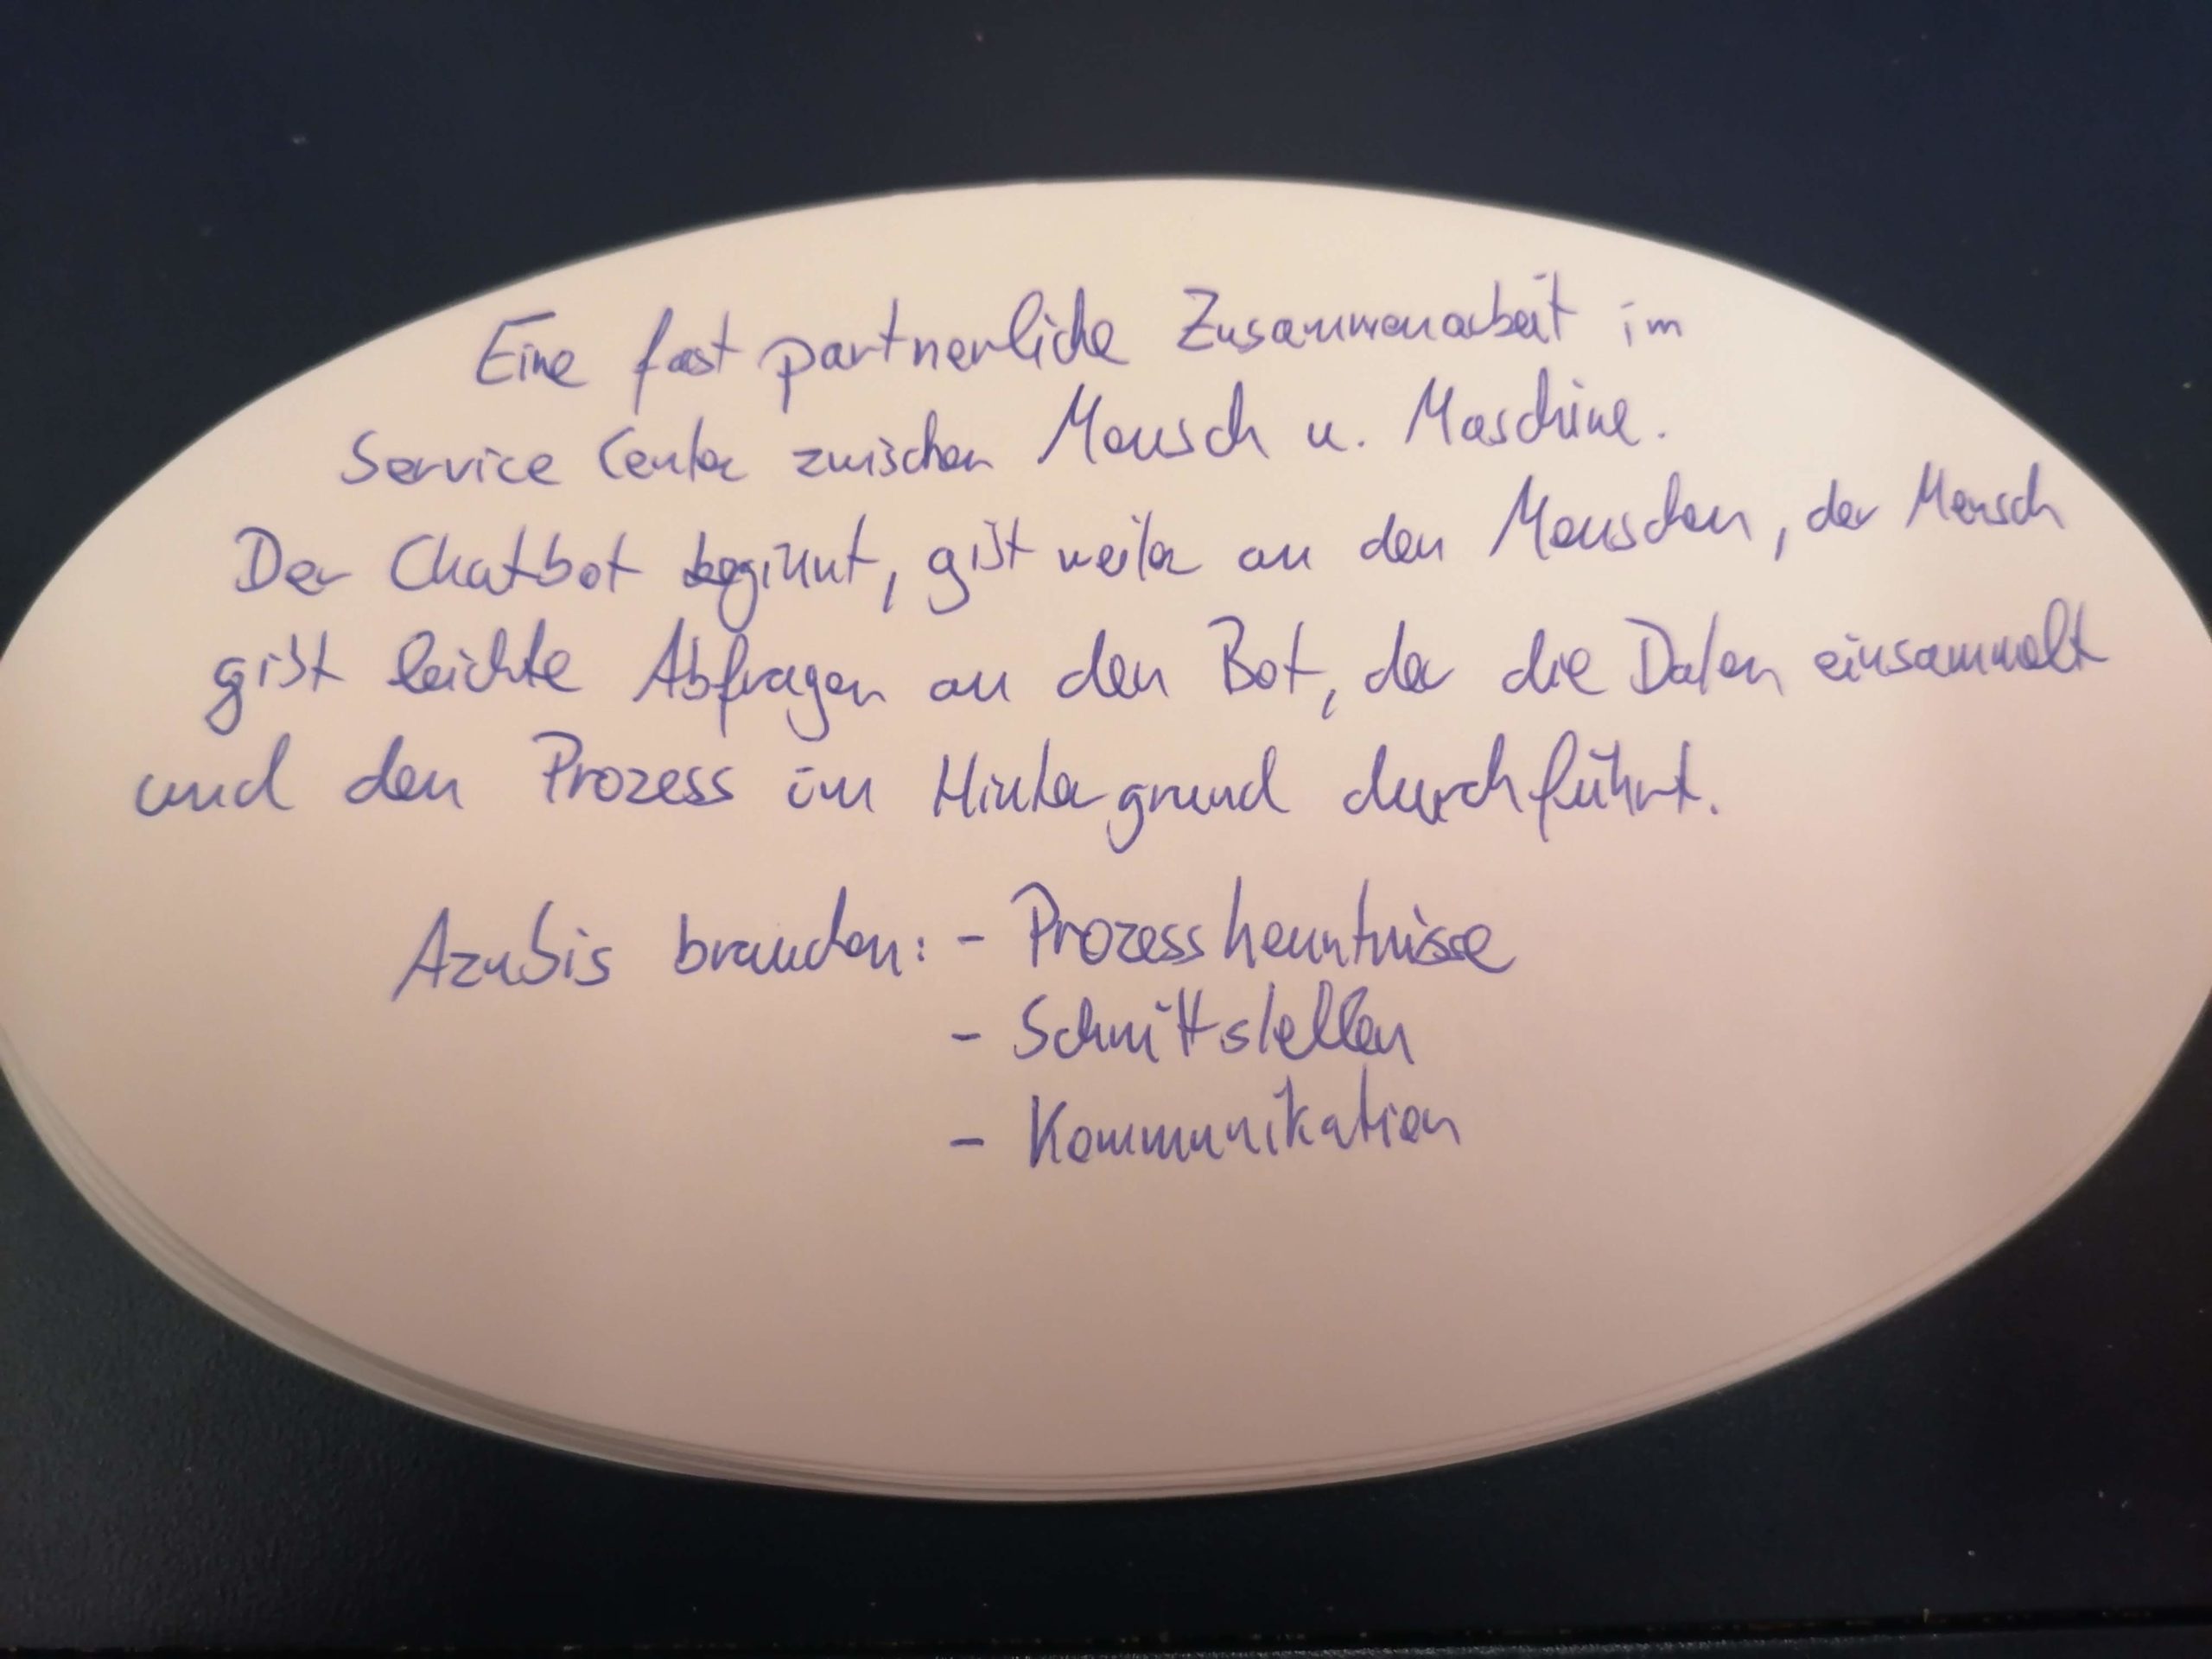 Eine fast partnerliche Zusammenarbeit im
Service Center zwischen Mensch u. Maschine.
Der Chatbot beginnt, gibt weiter an den Menschen, der Mensch
gibt leichte Abfragen an den Bot, der die Daten einsammelt
und den Prozess im Hintergrund durchführt.
Azubis brauchen: - Prozesskenntnisse
- Schnittstellen
- Kommunikation